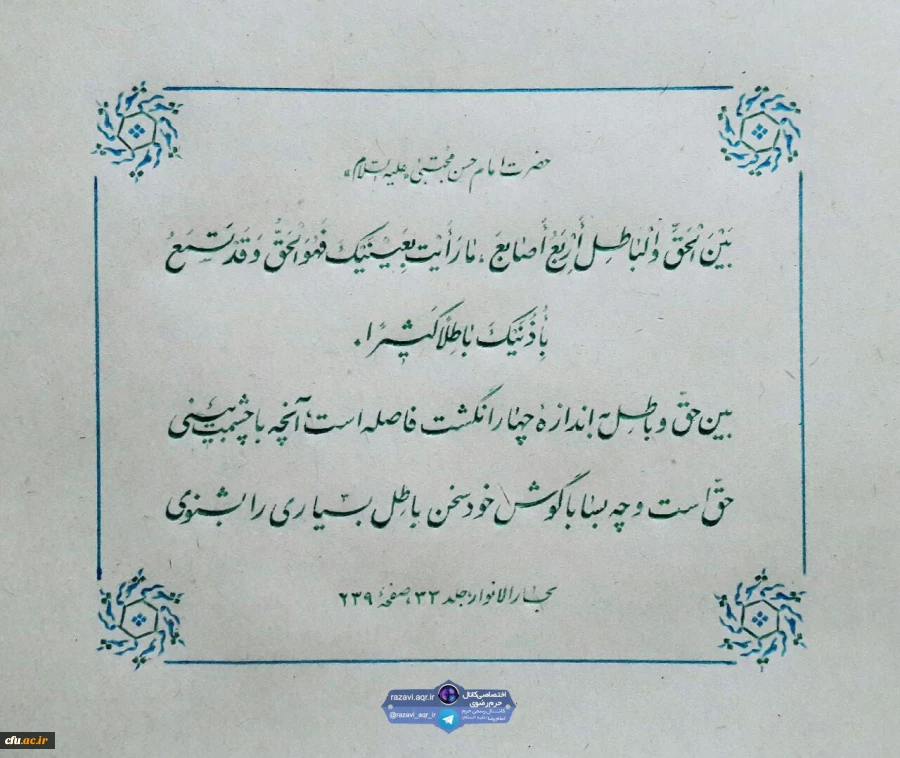 حضرت امام حسن مجتبی «علیه السلام»
بَیْنَ الْحَقِّ وَالْبَاطِلِ أَرْبَعُ أَصَابِعَ، مَا رَأَیْتَ بِعَیْنَیْكَ فَهُوَ الْحَقُّ وَقَدْ تَسْمَعُ
بِأُذُنَیْكَ بَاطِلًا كَثِیرًا.
بین حقّ و باطل به اندازهٔ چهار انگشت فاصله است، آنچه با چشمت بینی
حقّ است و چه بسا با گوش خود سخن باطل بسیاری را بشنوی
بحار الانوار، جلد ۳۳، صفحهٔ ۲۳۹
اختصاصی کانال حرم رضوی
razavi.aqr.ir
کانال رسمی حرم امام رضا علیه السلام
@razavi_aqr_ir
cfu.ac.ir